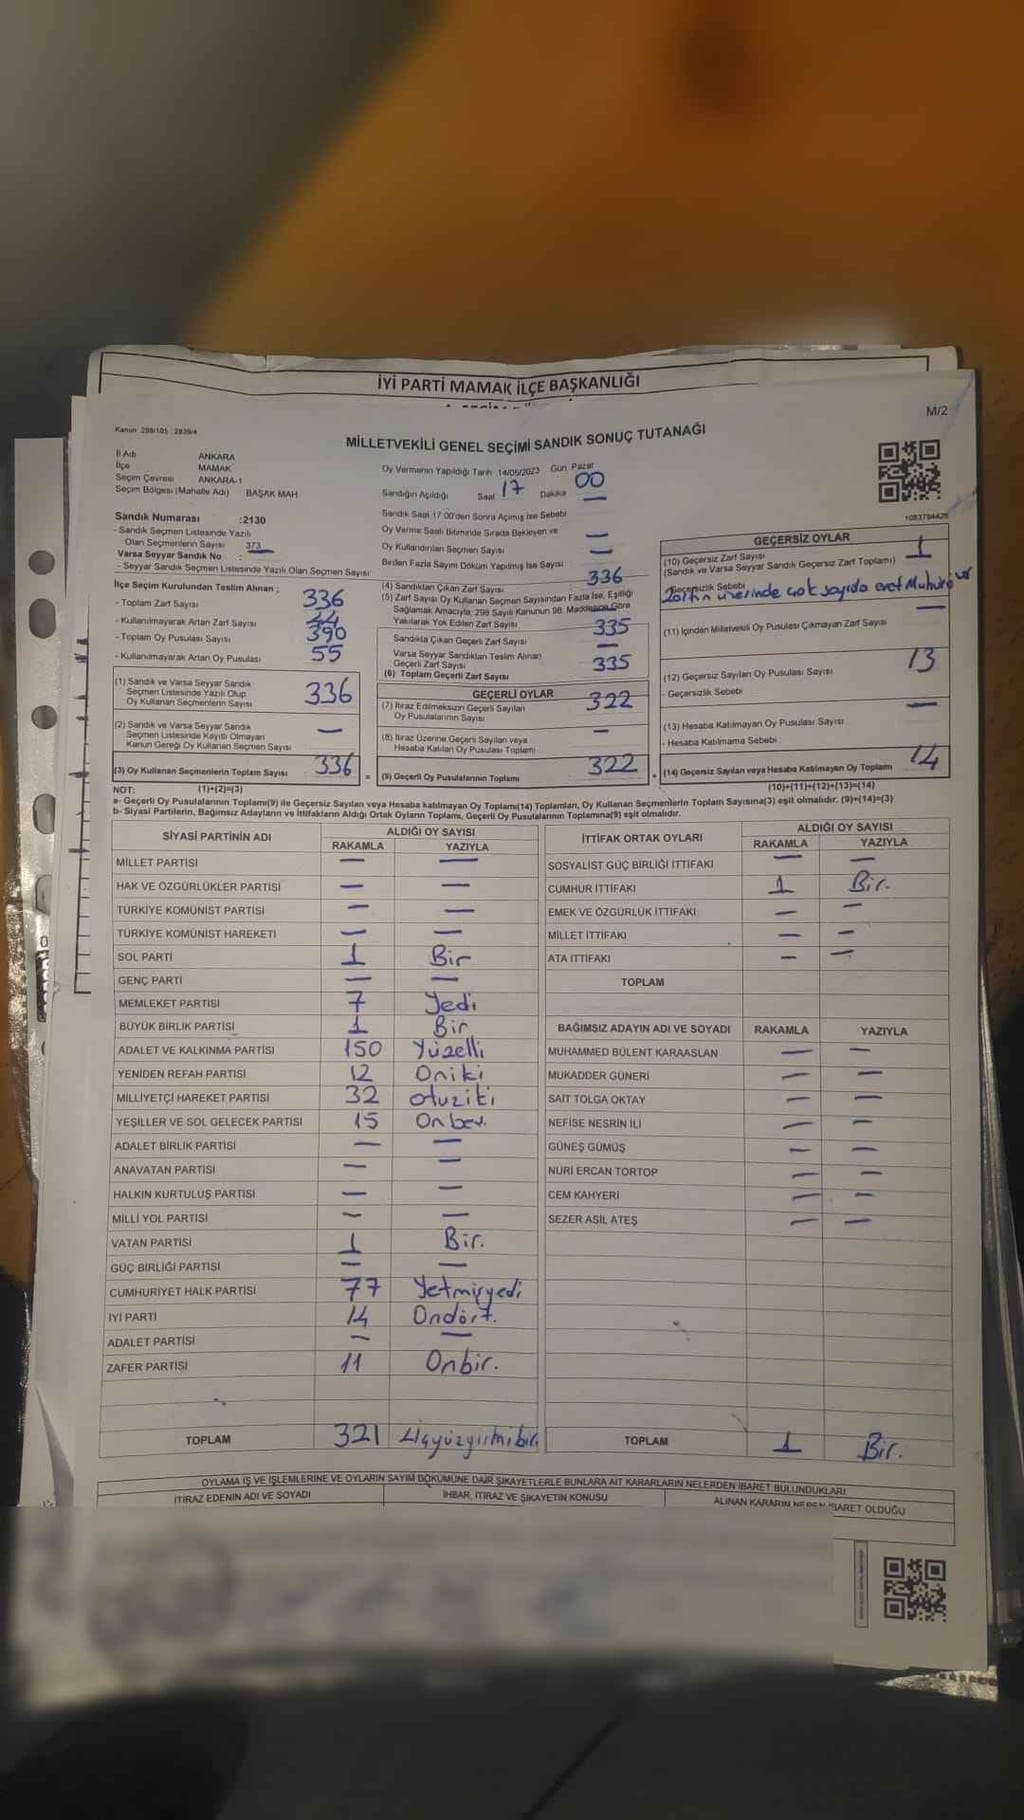 İYİ PARTİ MAMAK İLÇE BAŞKANLIĞI
M/2
Kanun 298/105 ; 2839/4
MİLLETVEKİLİ GENEL SEÇİMİ SANDIK SONUÇ TUTANAĞI
İl Adı ANKARA
İlçe MAMAK
Seçim Çevresi ANKARA-1
Seçim Bölgesi (Mahalle Adı) BAŞAK MAH
Sandık Numarası :2130
- Sandık Seçmen Listesinde Yazılı
Olan Seçmenlerin Sayısı 373
Varsa Seyyar Sandık No :
- Seyyar Sandık Seçmen Listesinde Yazılı Olan Seçmen Sayısı
Oy Vermenin Yapıldığı Tarih 14/05/2023 Gün Pazar
Sandığın Açıldığı Saat 17 Dakika 00
Sandık Saat 17:00'den Sonra Açılmış İse Sebebi —
Oy Verme Saati Bitiminde Sırada Bekleyen ve
Oy Kullandırılan Seçmen Sayısı —
Birden Fazla Sayım Döküm Yapılmış İse Sayısı —
1083784426
İlçe Seçim Kurulundan Teslim Alınan ;
- Toplam Zarf Sayısı 336
- Kullanılmayarak Artan Zarf Sayısı
- Toplam Oy Pusulası Sayısı 390
- Kullanılmayarak Artan Oy Pusulası 55
(1) Sandık ve Varsa Seyyar Sandık
Seçmen Listesinde Yazılı Olup
Oy Kullanan Seçmenlerin Sayısı 336
(2) Sandık ve Varsa Seyyar Sandık
Seçmen Listesinde Kayıtlı Olmayan
Kanun Gereği Oy Kullanan Seçmen Sayısı —
(3) Oy Kullanan Seçmenlerin Toplam Sayısı 336
(1)+(2)=(3)
(4) Sandıktan Çıkan Zarf Sayısı 336
(5) Zarf Sayısı Oy Kullanan Seçmen Sayısından Fazla İse, Eşitliği
Sağlamak Amacıyla; 298 Sayılı Kanunun 98. Maddesine Göre
Yakılarak Yok Edilen Zarf Sayısı
Sandıkta Çıkan Geçerli Zarf Sayısı 335
Varsa Seyyar Sandıktan Teslim Alınan
Geçerli Zarf Sayısı —
(6) Toplam Geçerli Zarf Sayısı 335
GEÇERLİ OYLAR
(7) İtiraz Edilmeksizin Geçerli Sayılan
Oy Pusulalarının Sayısı 322
(8) İtiraz Üzerine Geçerli Sayılan veya
Hesaba Katılan Oy Pusulası Toplamı —
= (9) Geçerli Oy Pusulalarının Toplamı 322
GEÇERSİZ OYLAR
(10) Geçersiz Zarf Sayısı 1
(Sandık ve Varsa Seyyar Sandık Geçersiz Zarf Toplamı)
Geçersizlik Sebebi
üzerinde çok sayıda evet
(11) İçinden Milletvekili Oy Pusulası Çıkmayan Zarf Sayısı —
(12) Geçersiz Sayılan Oy Pusulası Sayısı 13
- Geçersizlik Sebebi
(13) Hesaba Katılmayan Oy Pusulası Sayısı —
- Hesaba Katılmama Sebebi :
+ (14) Geçersiz Sayılan veya Hesaba Katılmayan Oy Toplamı 14
(10)+(11)+(12)+(13)=(14)
NOT:
a- Geçerli Oy Pusulalarının Toplamı(9) ile Geçersiz Sayılan veya Hesaba katılmayan Oy Toplamı(14) Toplamları, Oy Kullanan Seçmenlerin Toplam Sayısına(3) eşit olmalıdır. (9)+(14)=(3)
b- Siyasi Partilerin, Bağımsız Adayların ve İttifakların Aldığı Ortak Oyların Toplamı, Geçerli Oy Pusulalarının Toplamına(9) eşit olmalıdır.
SİYASİ PARTİNİN ADI ALDIĞI OY SAYISI
RAKAMLA YAZIYLA
MİLLET PARTİSİ — —
HAK VE ÖZGÜRLÜKLER PARTİSİ — —
TÜRKİYE KOMÜNİST PARTİSİ — —
TÜRKİYE KOMÜNİST HAREKETİ — —
SOL PARTİ 1 Bir
GENÇ PARTİ — —
MEMLEKET PARTİSİ 7 Yedi
BÜYÜK BİRLİK PARTİSİ 1 Bir
ADALET VE KALKINMA PARTİSİ 150 Yüzelli
YENİDEN REFAH PARTİSİ 12 Oniki
MİLLİYETÇİ HAREKET PARTİSİ 32 otuziki
YEŞİLLER VE SOL GELECEK PARTİSİ 15 Onbeş.
ADALET BİRLİK PARTİSİ — —
ANAVATAN PARTİSİ — —
HALKIN KURTULUŞ PARTİSİ — —
MİLLİ YOL PARTİSİ — —
VATAN PARTİSİ 1 Bir.
GÜÇ BİRLİĞİ PARTİSİ — —
CUMHURİYET HALK PARTİSİ 77 Yetmişyedi
İYİ PARTİ 14 Ondört.
ADALET PARTİSİ — —
ZAFER PARTİSİ 11 Onbir.
TOPLAM 321 Üçyüzyirmibir.
İTTİFAK ORTAK OYLARI ALDIĞI OY SAYISI
RAKAMLA YAZIYLA
SOSYALİST GÜÇ BİRLİĞİ İTTİFAKI — —
CUMHUR İTTİFAKI 1 Bir.
EMEK VE ÖZGÜRLÜK İTTİFAKI — —
MİLLET İTTİFAKI — —
ATA İTTİFAKI — —
TOPLAM
BAĞIMSIZ ADAYIN ADI VE SOYADI RAKAMLA YAZIYLA
MUHAMMED BÜLENT KARAASLAN — —
MUKADDER GÜNERİ — —
SAİT TOLGA OKTAY — —
NEFİSE NESRİN İLİ — —
GÜNEŞ GÜMÜŞ — —
NURİ ERCAN TORTOP — —
CEM KAHYERİ — —
SEZER ASİL ATEŞ — —
TOPLAM 1 Bir.
OYLAMA İŞ VE İŞLEMLERİNE VE OYLARIN SAYIM DÖKÜMÜNE DAİR ŞİKAYETLERLE BUNLARA AİT KARARLARIN NELERDEN İBARET BULUNDUKLARI
İTİRAZ EDENİN ADI VE SOYADI İHBAR, İTİRAZ VE ŞİKAYETİN KONUSU ALINAN KARARIN NEDEN İBARET OLDUĞU